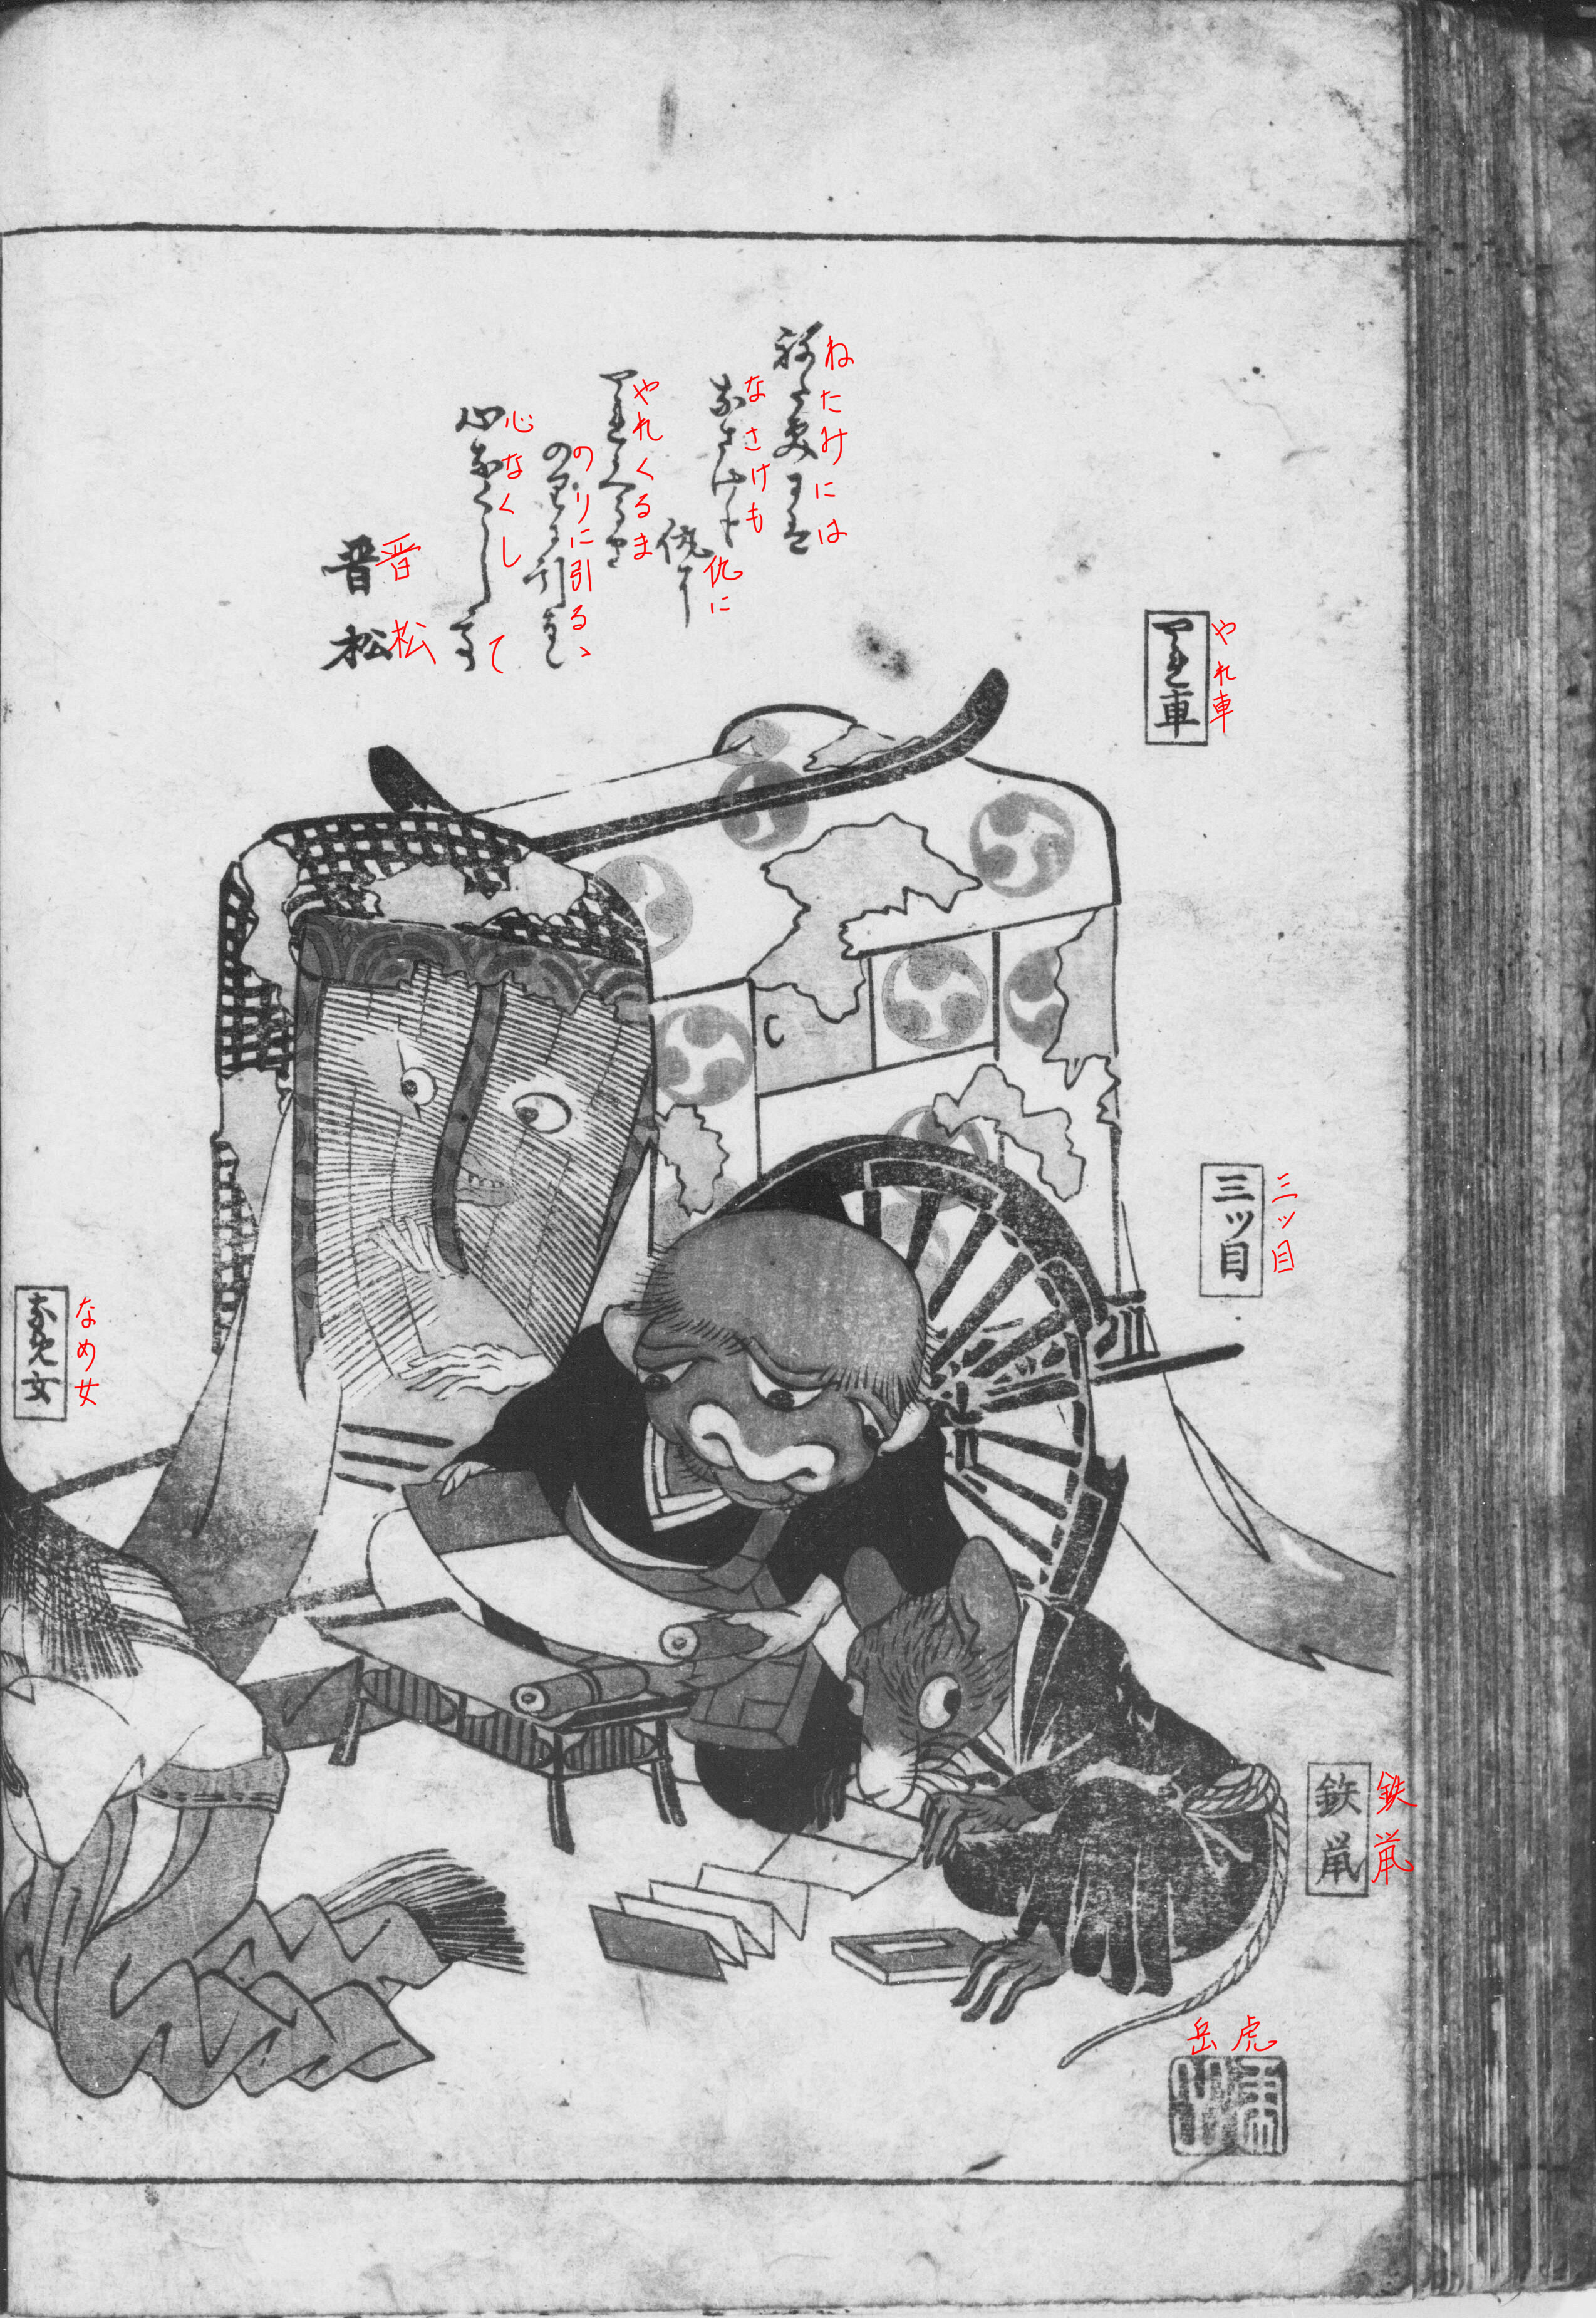 やれ車
三ツ目
鉄鼡
岳虎
ねたみには
なさけも
仇に
やれくるま
のりに引るゝ
心なくして
晋松
なめ女